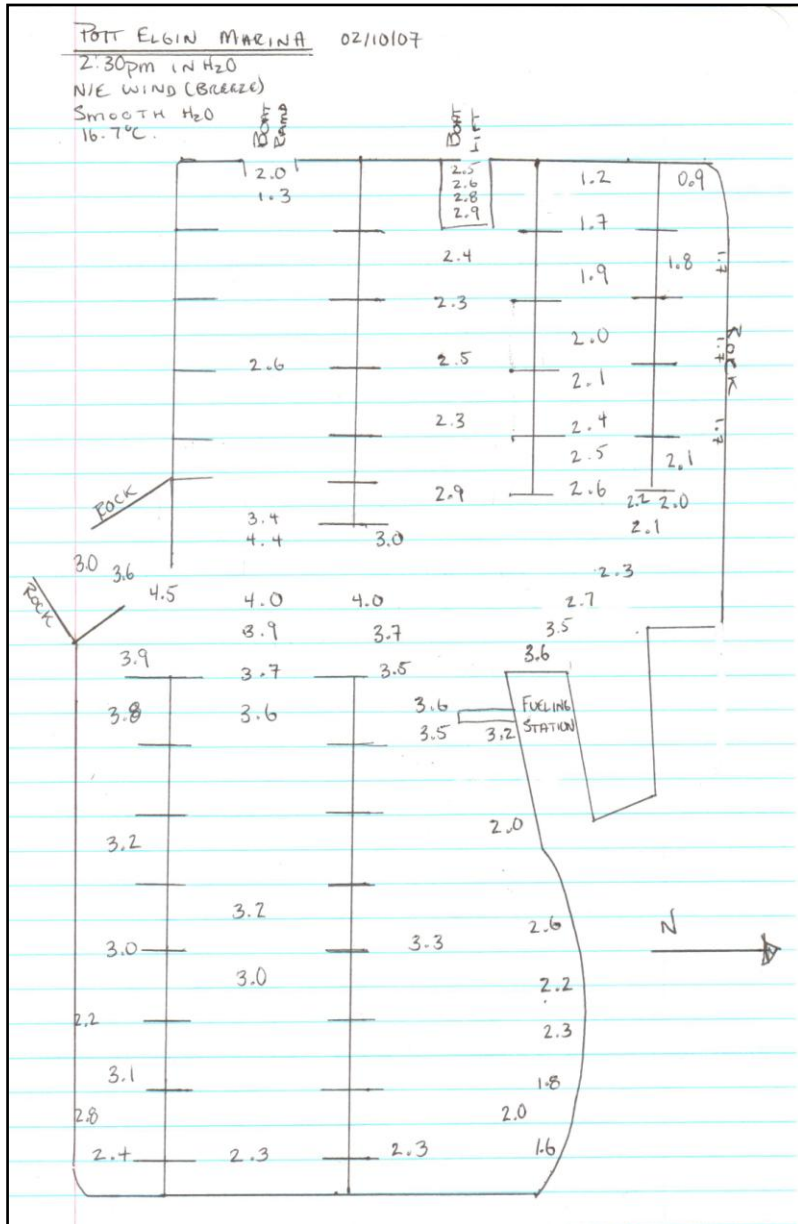 PORT ELGIN MARINA 02/10/07
2:30pm IN H2O
N/E WIND (BREEZE)
SMOOTH H2O
16.7°C.
BOAT RAMP
BOAT LIFT
2.0 2.5 1.2 0.9
1.3 2.6
2.8
2.9
1.7
2.4 1.9 1.8 1.7
2.3
2.0 1.7 ROCK
2.6 2.5 2.1
2.3 2.4 1.7
2.5 2.1
2.9 2.6 2.2 2.0
ROCK
3.4 2.1
4.4 3.0
3.0 3.6 2.3
ROCK 4.5 4.0 4.0 2.7
3.9 3.7 3.5
3.9 3.7 3.5 3.6
3.8 3.6 3.6 FUELING
3.5 3.2 STATION
2.0
3.2
3.2 2.6 N
3.0 3.3
3.0 2.2
2.2 2.3
3.1 1.8
2.8 2.0
2.4 2.3 2.3 1.6